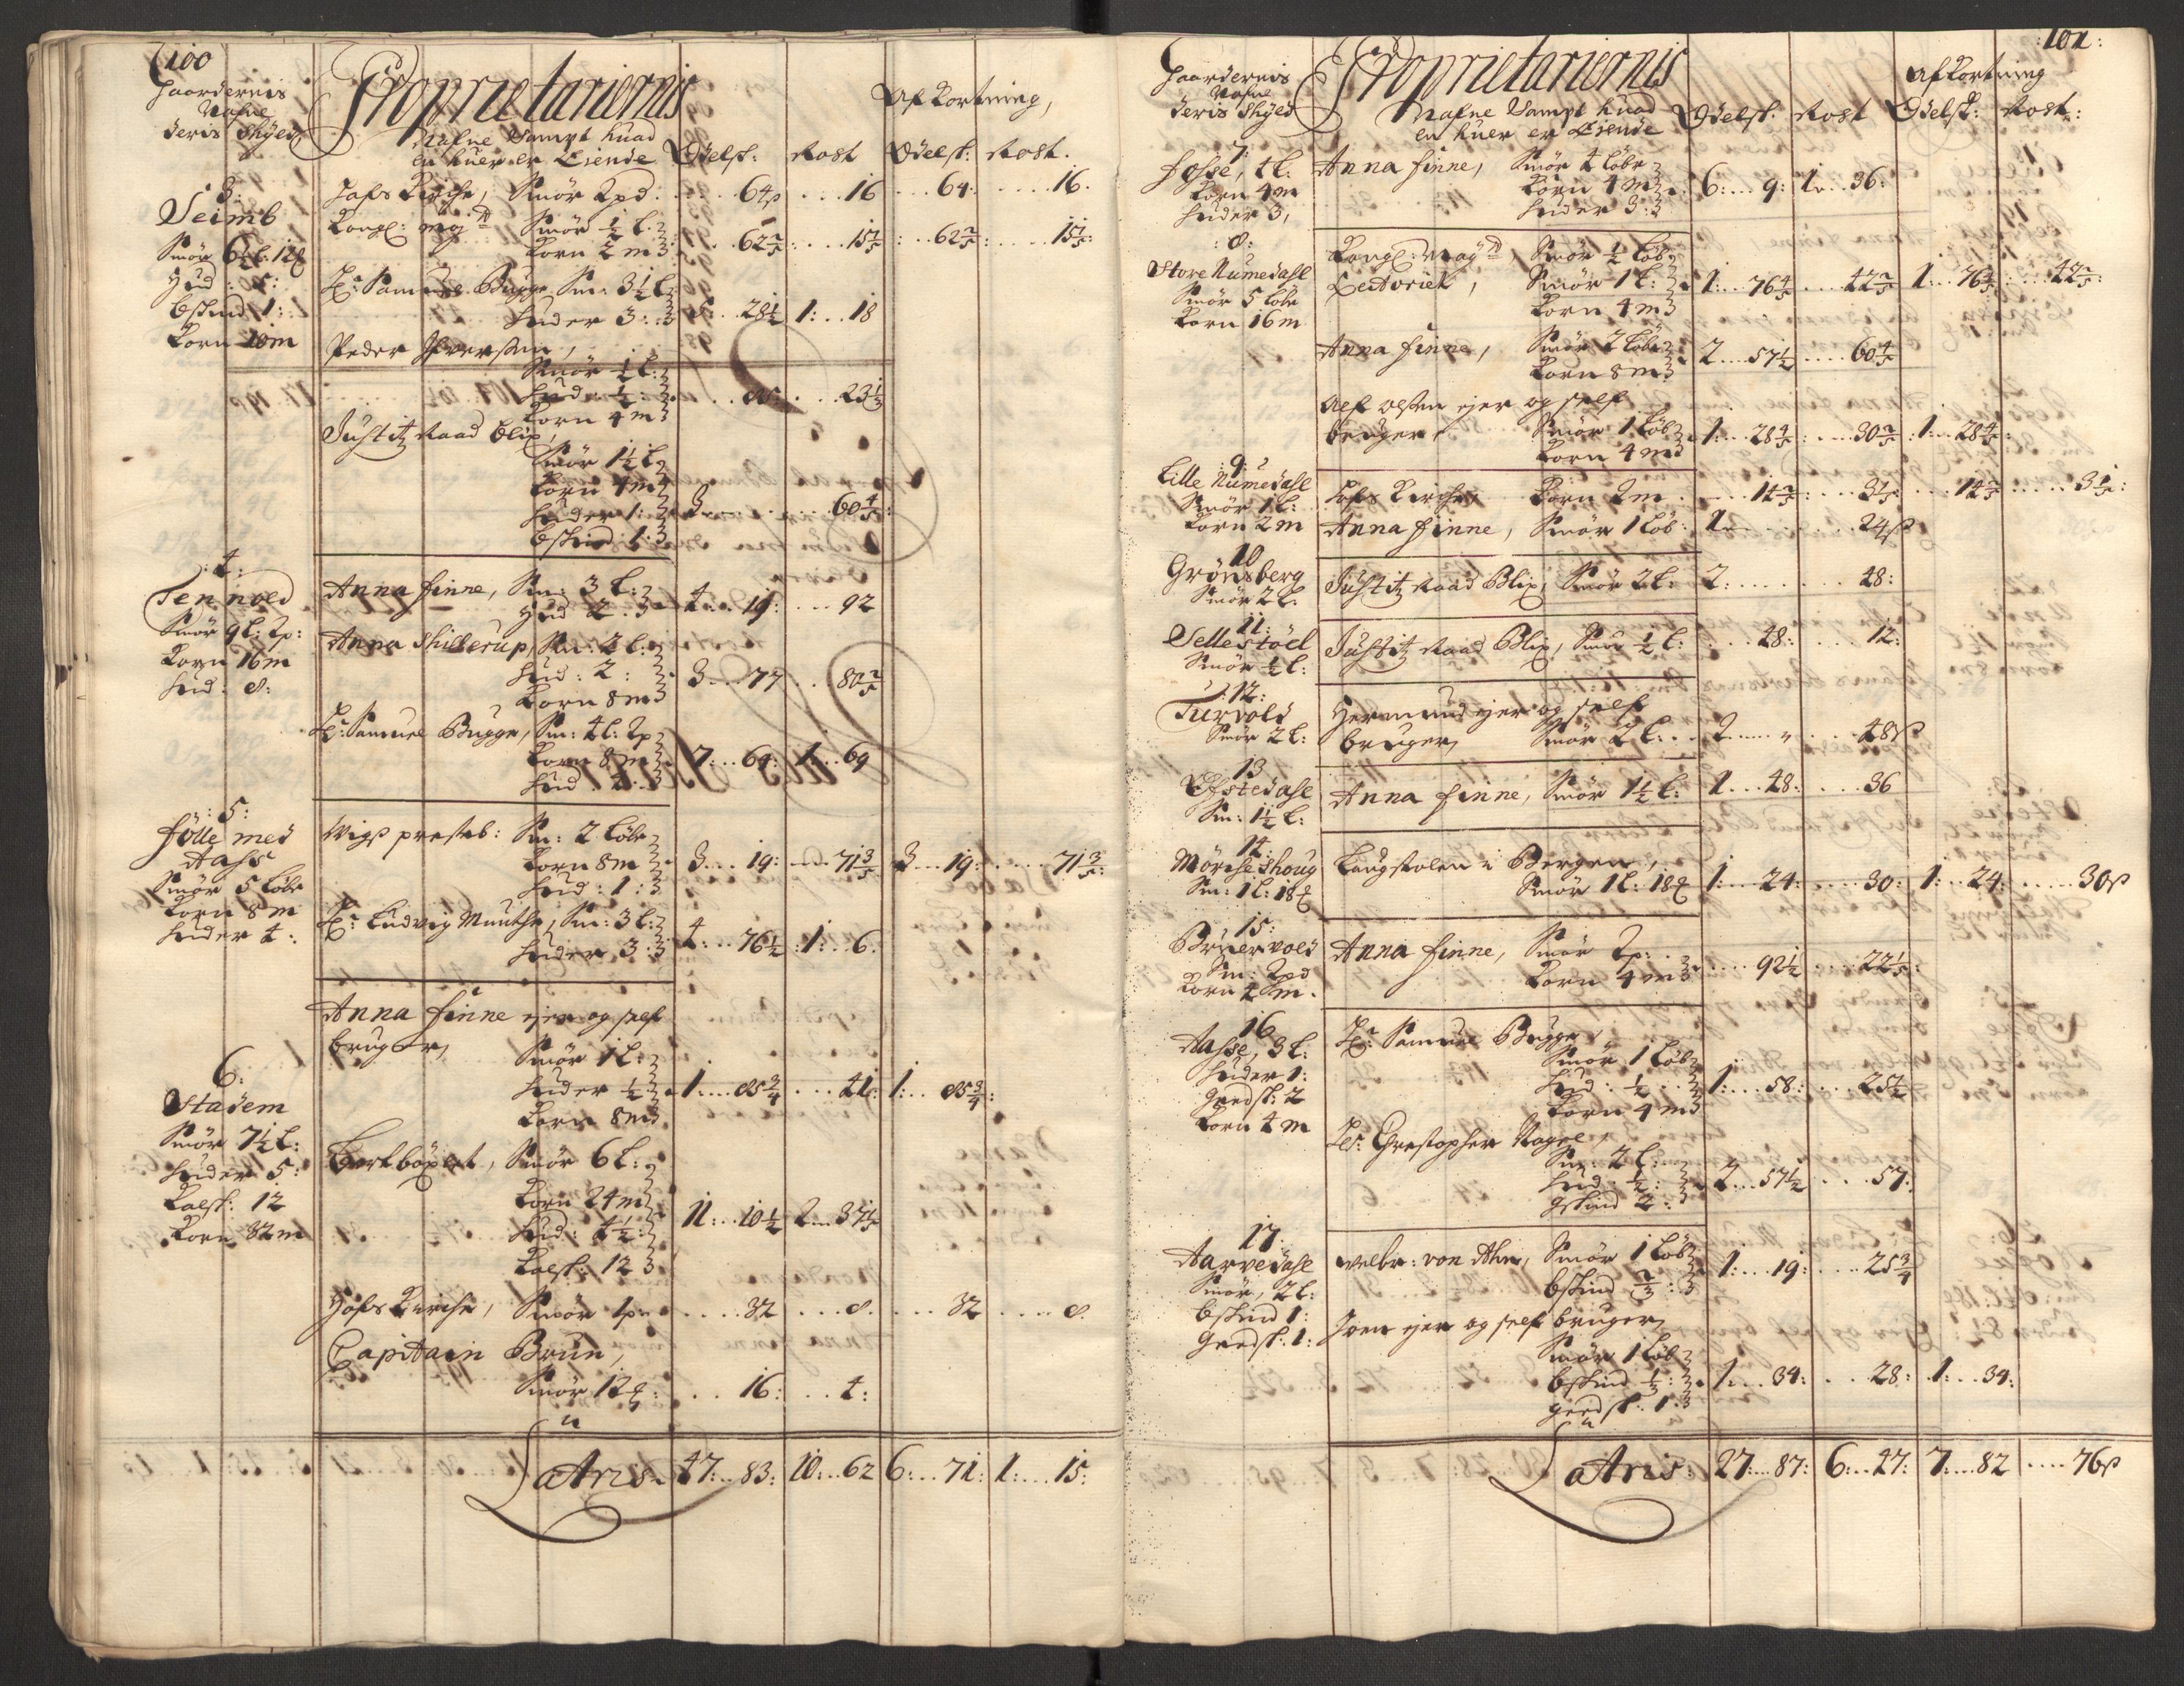 100
Gaardernis
Nafne
deris Skyld
Proprietariernis
Nafne Sampt huad
en huer er Eiende
Afkortning,
Odelsk: Rost Odelsk: Rost.
3:
Seimb
Smör 6½ l: 12
Hud
bskind 1:
Korn 10 m
Hafs Kirche, Smör 2 pd: 64 ß 16 64: 16.
Kongl: May: Smör ½ l:
Korn 2 m 62 2/5: 15 3/5 62 2/5: 15 3/5:
Hr: Samuel Bugge Sm: 3½ l:
Huder 3: 5 28½ 1: 18
Peder Iversen,
Smör ½ l:
Hud: ½:
Korn 4 m 23⅓
Justitz Raad Blix,
Smör 1½ l:
Korn 4 m
Huder 1:
bskind 1: 3 60 4/5:
4:
Tennoed
Smör 9 l: 2p:
Korn 16 m
Hud: 8:
Anna finne, Sm: 3 l:
Hud 2: 4: 19: 92
Anna Shillerup, Sm: 2 l:
Hud: 2:
Korn 8 m 3 77 80 2/5
Hr: Samuel Bugge, Sm: 4 l: 2p
Korn 8 m
Hud 4: 7: 69: 1: 69
5:
fölle med
Aahs
Smör 5 Löbe
Korn 8 m
Huder 4:
Wigs prestb: Sm: 2 Löbe
Korn 8 m
Hud: 1: 3 19: 71 3/5 3 19: 71 3/5:
Hr: Ludvig Munthe, Sm: 3 l:
Huder 3: 4: 76½: 1: 6:
6:
Stadem
Smör 7½ l:
Huder 5:
Kalfsk: 12
Korn 32 m
Anna finne ejer og self
bruger,
Smör 1 l:
Huder ½
Korn 8 m 1: 85¾ 41: 1: 85¾:
Smör 6 l:
Korn 24 m
Hud: 4½:
Kalfsk: 12 11: 10½ 2: 37 1/5
Hofs Kirche, Smör 1p: 32 8. 32 8.
Capitain Brun,
Smör 12: 16: 4:
Lateris 47: 83: 10: 62 6: 71: 1: 15:
:101:
Gaardernis
Nafne
deris Skyld
Proprietariernis
Nafne Sampt huad
en huer er Eiende
Afkortning
Odelsk: Rost Odelsk: Rost:
7:
fosse, 4 l:
Korn 4 m
Huder 3,
Anna finne, Smör 4 Löbe
Korn 4 m
Huder 3: 6: 9: 1 36:
:8:
Store Numedahl
Smör 5 Löbe
Korn 16 m
Kongl: May, Smör ½ Löb
Lectoriet, Smör 1 l:
Korn 4 m 1: 76 4/5 42 2/5 1: 76 4/5: 42 2/5:
Anna finne, Smör 2 Löbe
Korn 8 m 2 57½ 60 4/5
Alf olsen ejer og self
bruger, Smör 1 Löb
Korn 4 m 1: 28 4/5: 30 2/5: 1: 28 4/5:
:9:
Lille Numedahl
Smör 1 l:
Korn 2 m
Hafs Kirche, Korn 2 m 14 2/5: 3 1/5: 14 2/5 3 1/5:
Anna finne, Smör 1 Löb: 1 24 ß
10
Grönsberg
Smör 2 l:
Justitz Raad Blix, Smör 2 l: 2: 48:
11:
Sellestöel
Smör ½ l:
Justitz Raad Blix, Smör ½ l: 48: 12:
:12:
Turvold
Smör 2 l:
Hermund ejer og self
bruger, Smör 2 l: 2 48 ß
13
Efstedahl
Sm: 1½ l:
Anna finne, Smör 1½ l: 1 48: 36
14
Mörcheshoug
Sm: 1 l: 18
Laugstolen i Bergen,
Smör 1 l: 18 1: 24: 30: 1: 24: 30 ß
15:
Bruervold
Sm: 2 pd
Korn 4 m.
Anna finne, Smör 2p:
Korn 4 m 92½ 22 1/5:
16
Aahse, 3 l:
Huder 1:
Giedsk: 2
Korn 4 m
Hr: Samuel Bugge,
Smör 1 Löb
Hud: ½
Korn 4 m 1: 58: 25½
Hr: Chrestopher
Sm: 2 l:
Hud: ½:
gskind 2: 2 57½ 57:
17.
Aarvedahl
Smör, 2 l:
bskind 1:
Giedsk: 1:
welbr: von Ahn, Smör 1 Löb
bskind ⅔: 1: 19: 25¾
Joen ejer og self bruger,
Smör 1 Löb
bskind ⅓:
giedsk: 1: 1 34: 28: 1: 34:
Lateris: 27: 87: 6: 47: 7: 82 76 ß